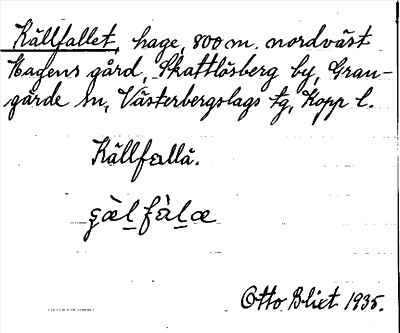 Källfallet, hage, 800 m. nordväst
Hagens gård, Skattlösberg by, Gran-
gärde sn, Västerbergslags tg, Kopp l.
Källfallä.
gàlfàlæ
Otto Blixt 1935.